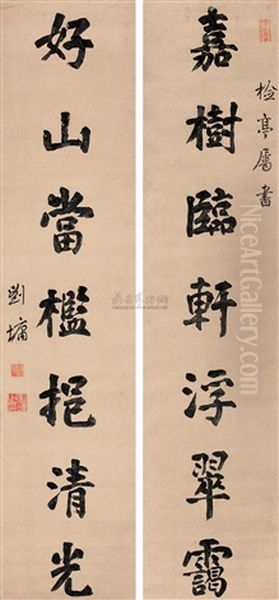 嘉樹臨軒浮翠靄
好山當檻挹清光
亭屬書
劉墉